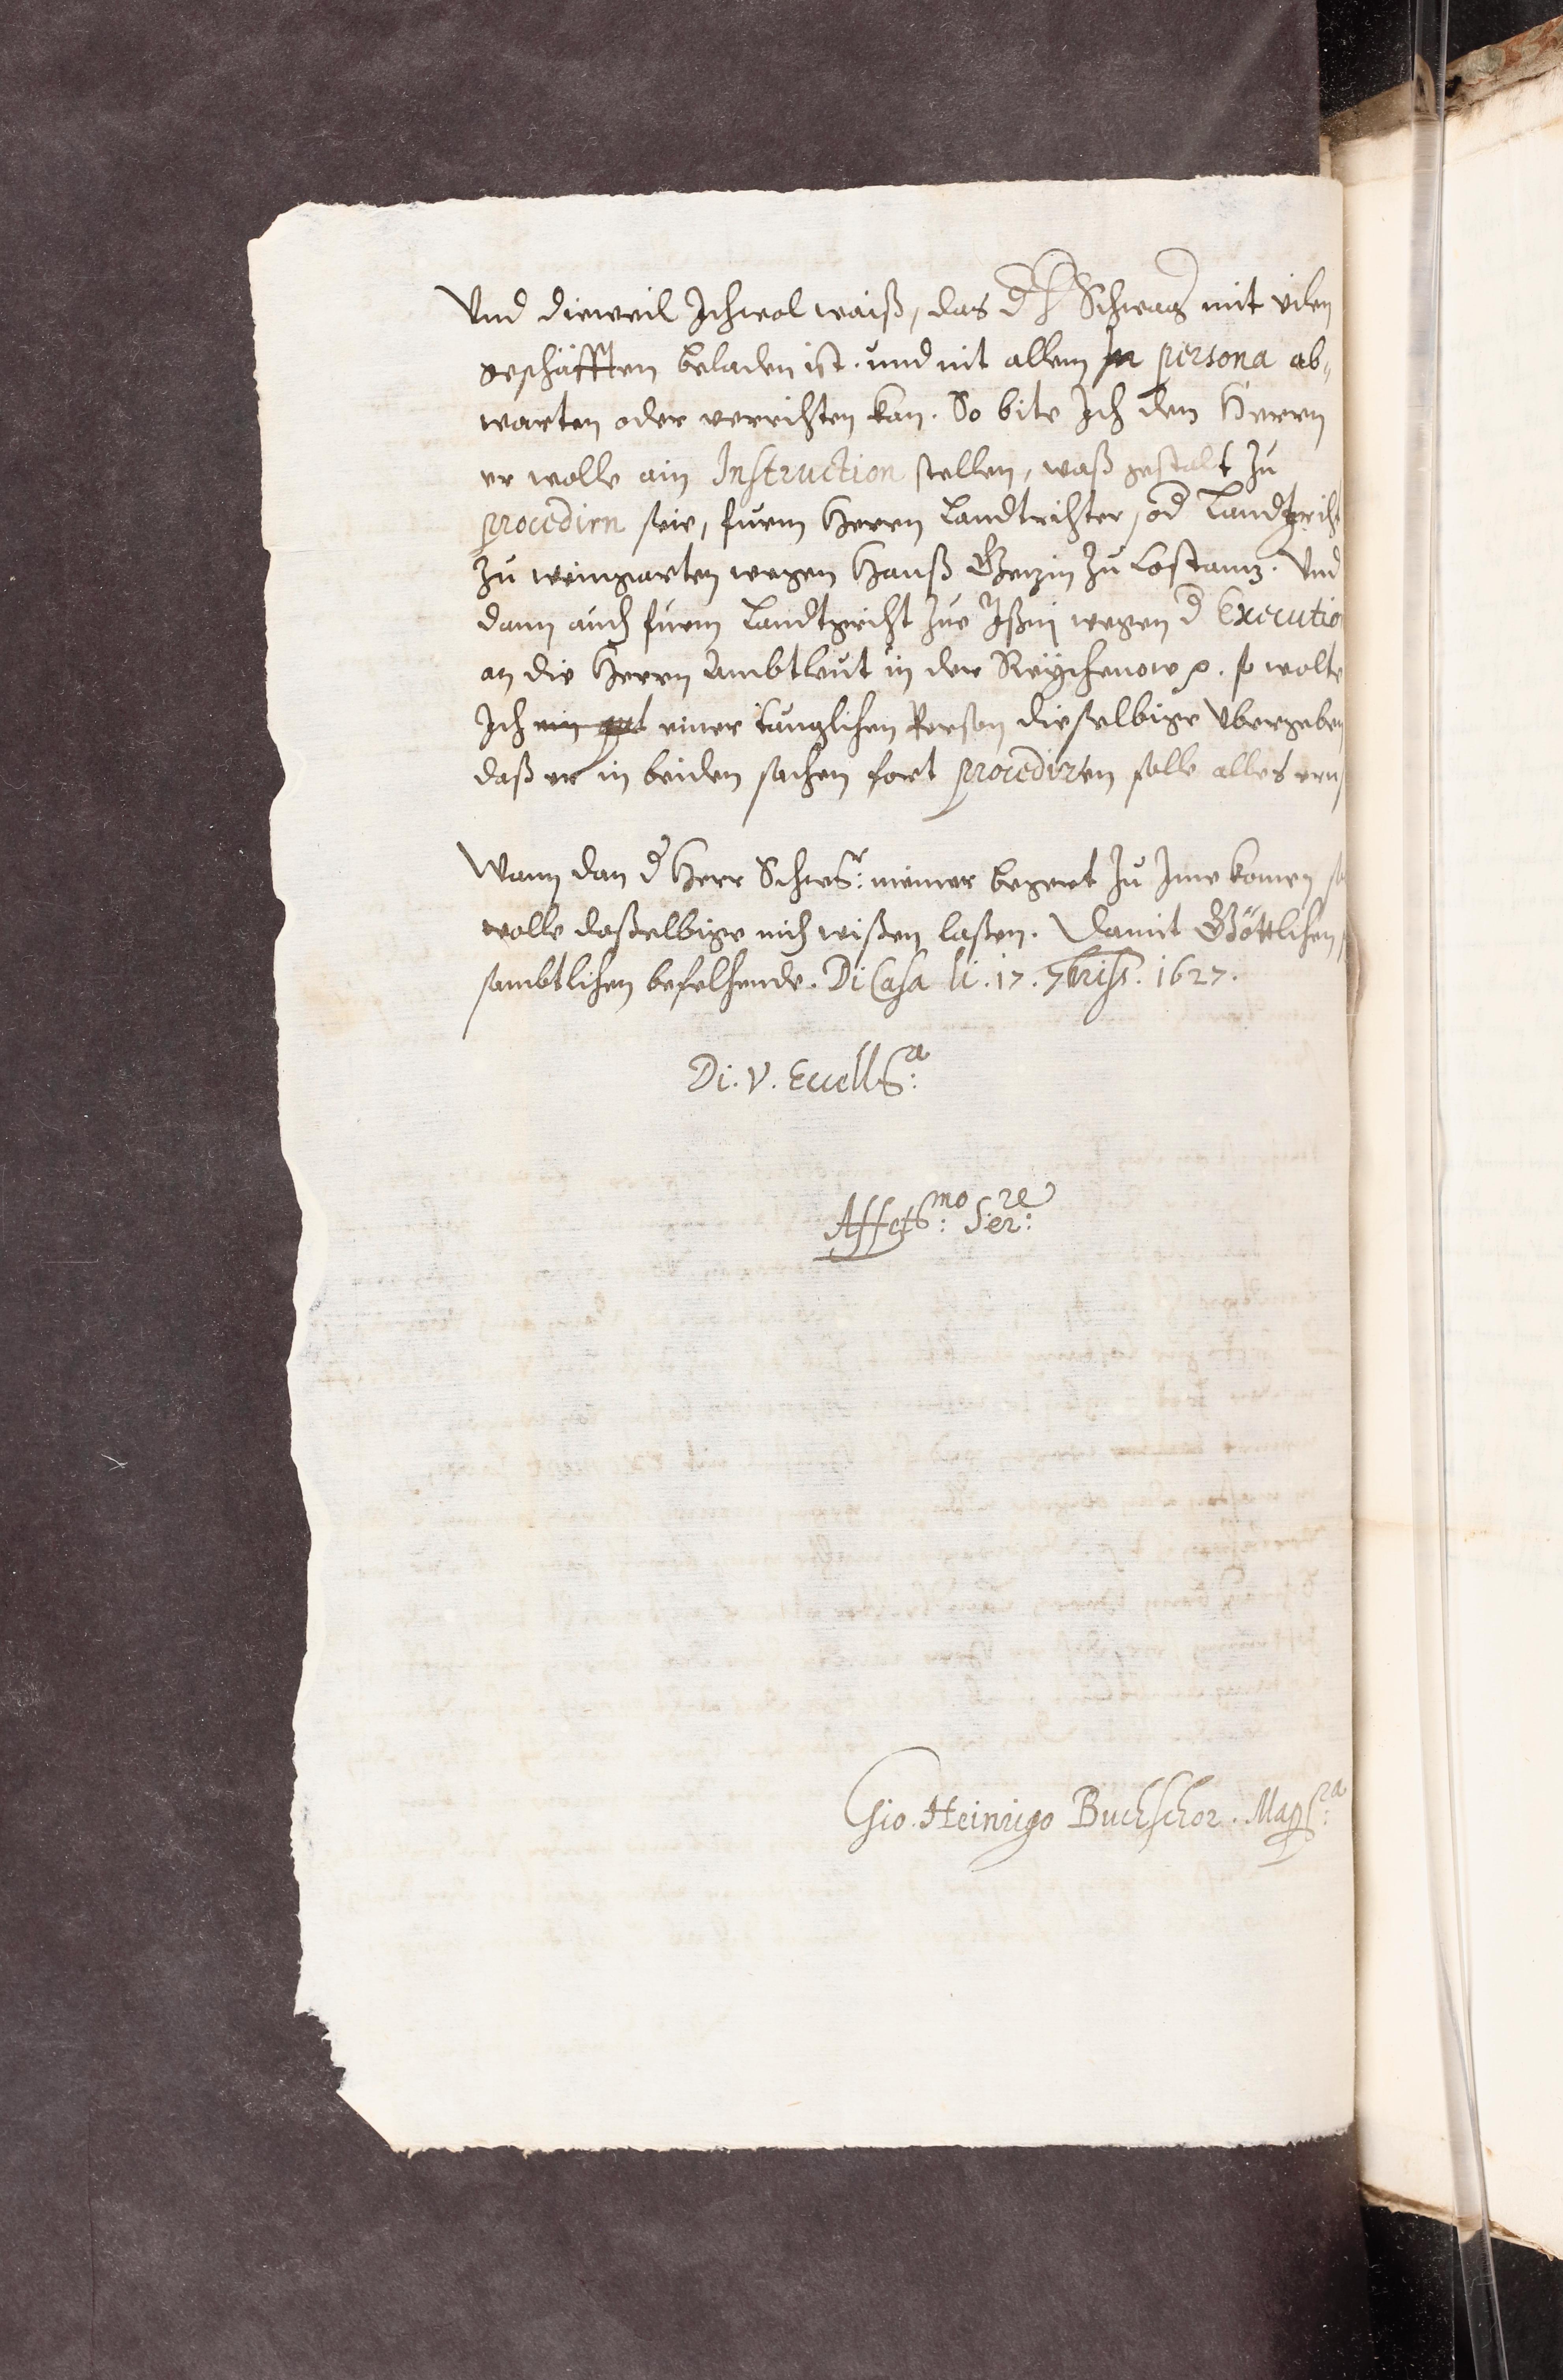 Und dieweil Ich wol waiß, das dr h Schwag mit vilen
geschäfften beladen ist. und nit allem In persona ab„
warten oder verrichten kan. So bite Ich den Herrn
er wolle ain Instruction stellen, waß gestalt zu
procedirn seie, fürm Herrn Landtrichter, od Landtgricht
zu weingarten wegen Hanß Gerzin zu Costantz. Und
dann auch fürm Landtgricht zue Ißni wegen d Executio
an die Herrn Ambtleut in der Reychenow p. so wolte
Ich einer tauglichen Person dieselbige ubergeben
daß er in beiden sachen fort procediren solle alles
Wann dan dr Herr Schwr: meiner begert zu Ime komen
wolle daßelbige mich wißen laßen. Damit Göttlichen
sambtlichen befelhende. Di Casa li. 17. 7bris. 1627.
Di. V. Eccellza:
Affetmo: Serre:
Gio. Heinrigo Buchschor.